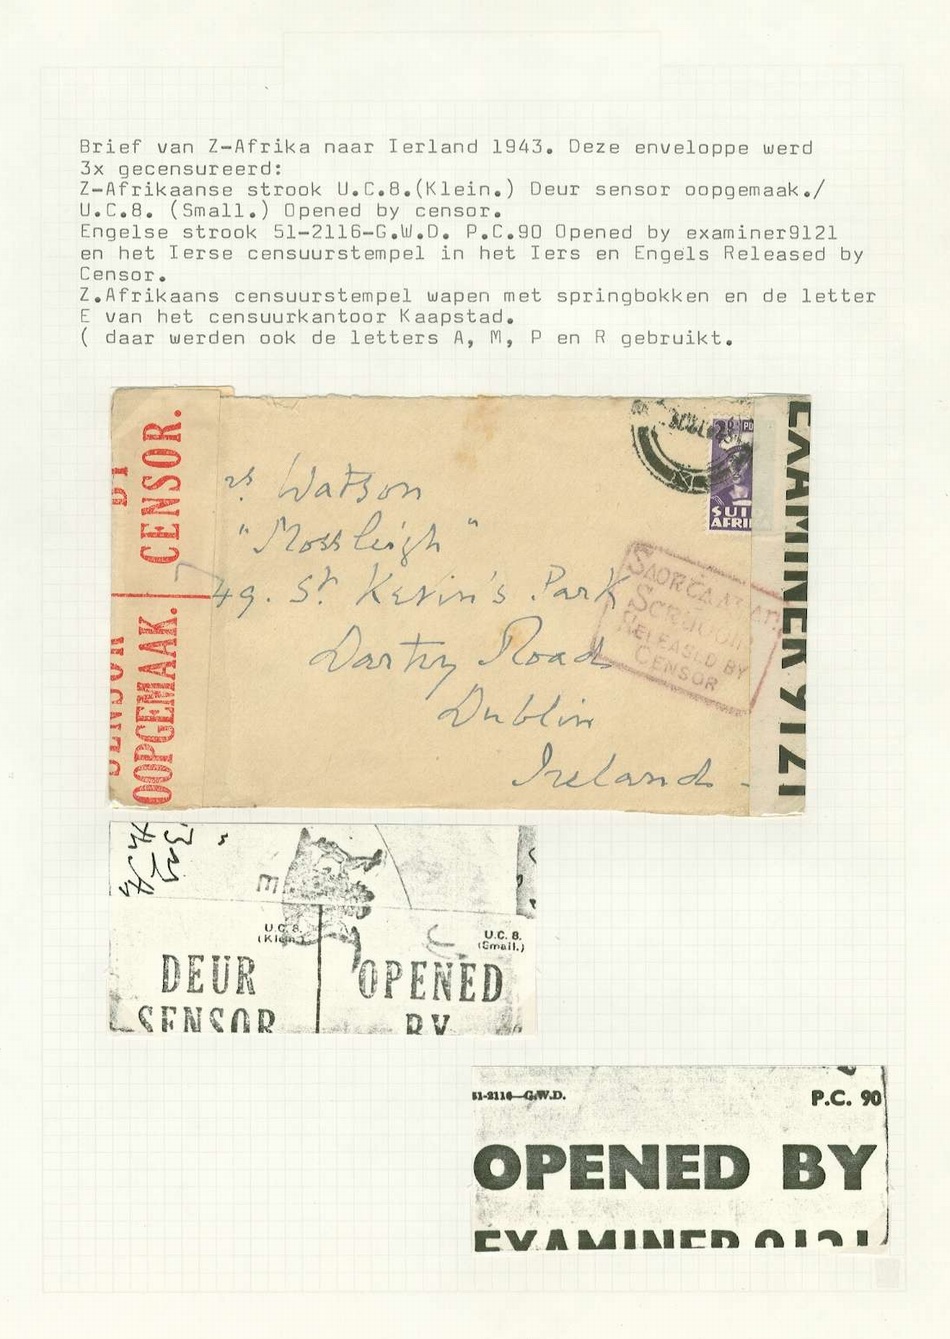 Brief van Z-Afrika naar Ierland 1943. Deze enveloppe werd
3x gecensureerd:
Z-Afrikaanse strook U.C.8.(Klein.) Deur sensor oopgemaak./
U.C.8. (Small.) Opened by censor.
Engelse strook 51-2116-G.W.D. P.C.90 Opened by examiner9121
en het Ierse censuurstempel in het Iers en Engels Released by
Censor.
Z.Afrikaans censuurstempel wapen met springbokken en de letter
E van het censuurkantoor Kaapstad.
( daar werden ook de letters A, M, P en R gebruikt.
BY
CENSOR.
SENSOR
OOPGEMAAK.
rs. Watson
"Mossleigh"
49. St Kevin's Park
Dartry Road
Dublin
Ireland.
SUID
AFRI
RELEASED BY
CENSOR
EXAMINER 9121
E
U.C.8.
(Klein.)
U.C. 8.
(Small.)
DEUR
OPENED
SENSOR
BY
51-2116—G.W.D.
P.C. 90
OPENED BY
EXAMINER 9121